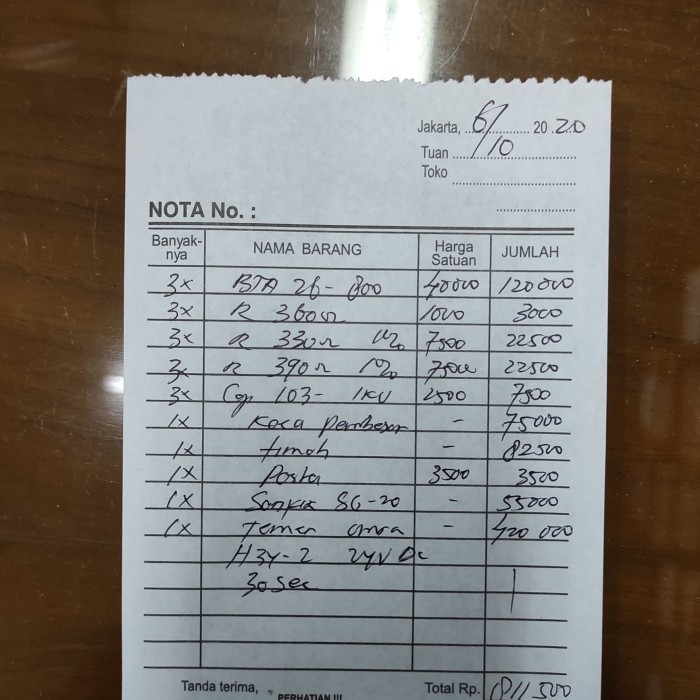 Jakarta, 6/10 20 20
Tuan
Toko
NOTA No. :
Banyak-nya NAMA BARANG Harga Satuan JUMLAH
3x BTA 26-800 40000 120000
3x R 360Ω 1000 3000
3x R 330Ω 7500 22500
3x R 390Ω 7500 22500
3x Cap 103- 1KV 2500 7500
1x Kaca pembesar - 75000
1x timah - 82500
1x Pasta 3500 3500
1x SG-20 - 55000
1x Timer - 420 000
H3Y-2 24V DC
30 Sec
Tanda terima, PERHATIAN !!! Total Rp. 811 500